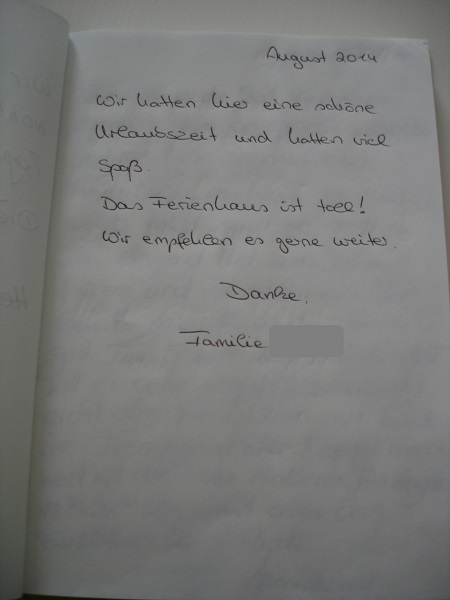 August 2014
Wir hatten hier eine schöne
Urlaubszeit und hatten viel
Spaß.
Das Ferienhaus ist toll!
Wir empfehlen es gerne weiter.
Danke,
Familie